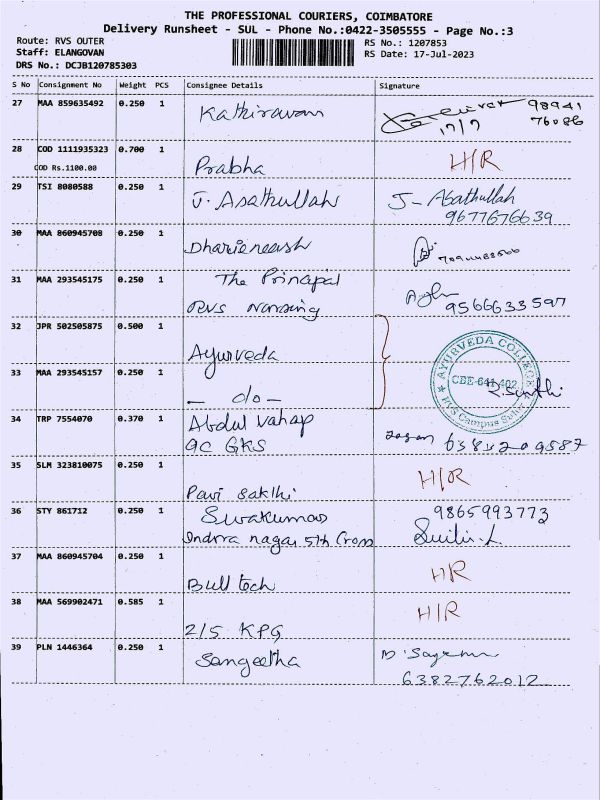 THE PROFESSIONAL COURIERS, COIMBATORE
Delivery Runsheet - SUL - Phone No.:0422-3505555 - Page No.:3
Route: RVS OUTER
Staff: ELANGOVAN
DRS No.: DCJB120785303
RS No.: 1207853
RS Date: 17-Jul-2023
S No Consignment No Weight PCS Consignee Details Signature
27 MAA 859635492 0.250 1 Kathiravan 98941
17/7 76086
28 COD 1111935323 0.700 1 Prabha H/R
COD Rs.1100.00
29 TSI 8080588 0.250 1 J. Asathullah J- Asathullah
9677676639
30 MAA 860945708 0.250 1
31 MAA 293545175 0.250 1 The Principal
RVS Nursing 9566633597
32 JPR 502505875 0.500 1 Ayurveda
AYURVEDA COLLEGE
CBE-641 402
RVS Campus Sulur
33 MAA 293545157 0.250 1 - do -
34 TRP 7554070 0.370 1 Abdul Vahap
GKS
35 SLM 323810075 0.250 1 Pavi Sakthi H/R
36 STY 861712 0.250 1 Sivakumar 9865993773
Indra nagar 5th Cross
37 MAA 860945704 0.250 1 Bull tech HR
38 MAA 569902471 0.585 1 2/5 KPG H/R
39 PLN 1446364 0.250 1 Sangeetha
6382762012